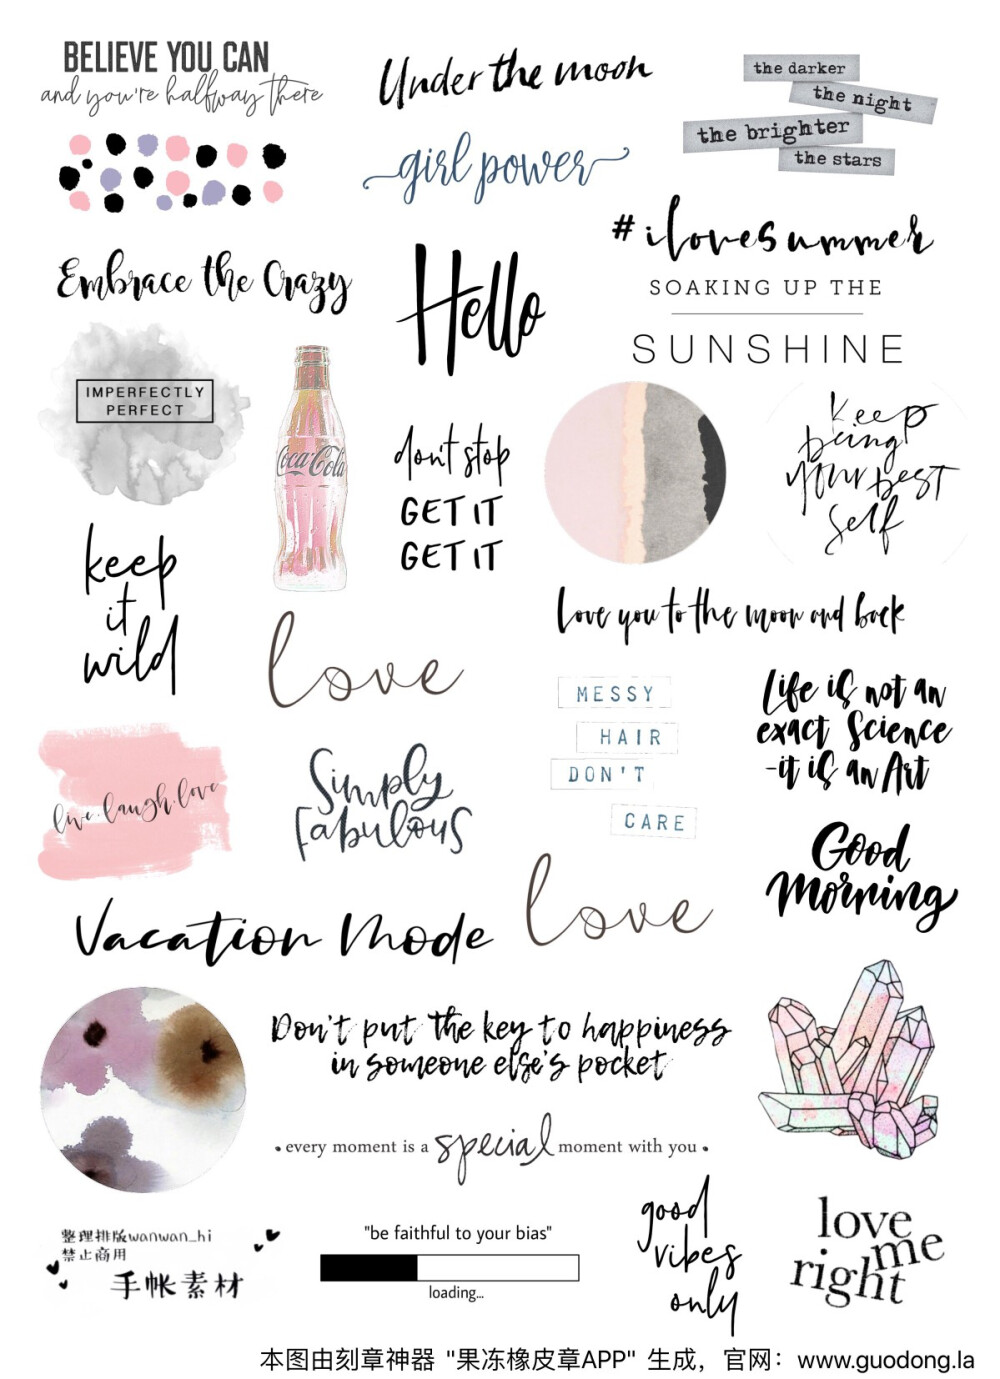 BELIEVE YOU CAN
and you're halfway there
Under the moon
girl power
the darker
the night
the brighter
the stars
#ilovesummer
SOAKING UP THE
SUNSHINE
Embrace the Crazy
Hello
IMPERFECTLY
PERFECT
Coca-Cola
don't stop
GET IT
GET IT
keep
being
your best
self
keep
it
wild
love
love you to the moon and back
MESSY
HAIR
DON'T
CARE
Life is not an
exact Science
-it is an Art
live.laugh.love
Simply
fabulous
Good
Morning
love
Vacation Mode
Don't put the key to happiness
in someone else's pocket
• every moment is a special moment with you •
整理排版wanwan_hi
禁止商用
手帐素材
"be faithful to your bias"
loading...
good
vibes
only
love
me
right
本图由刻章神器 "果冻橡皮章APP" 生成，官网：www.guodong.la